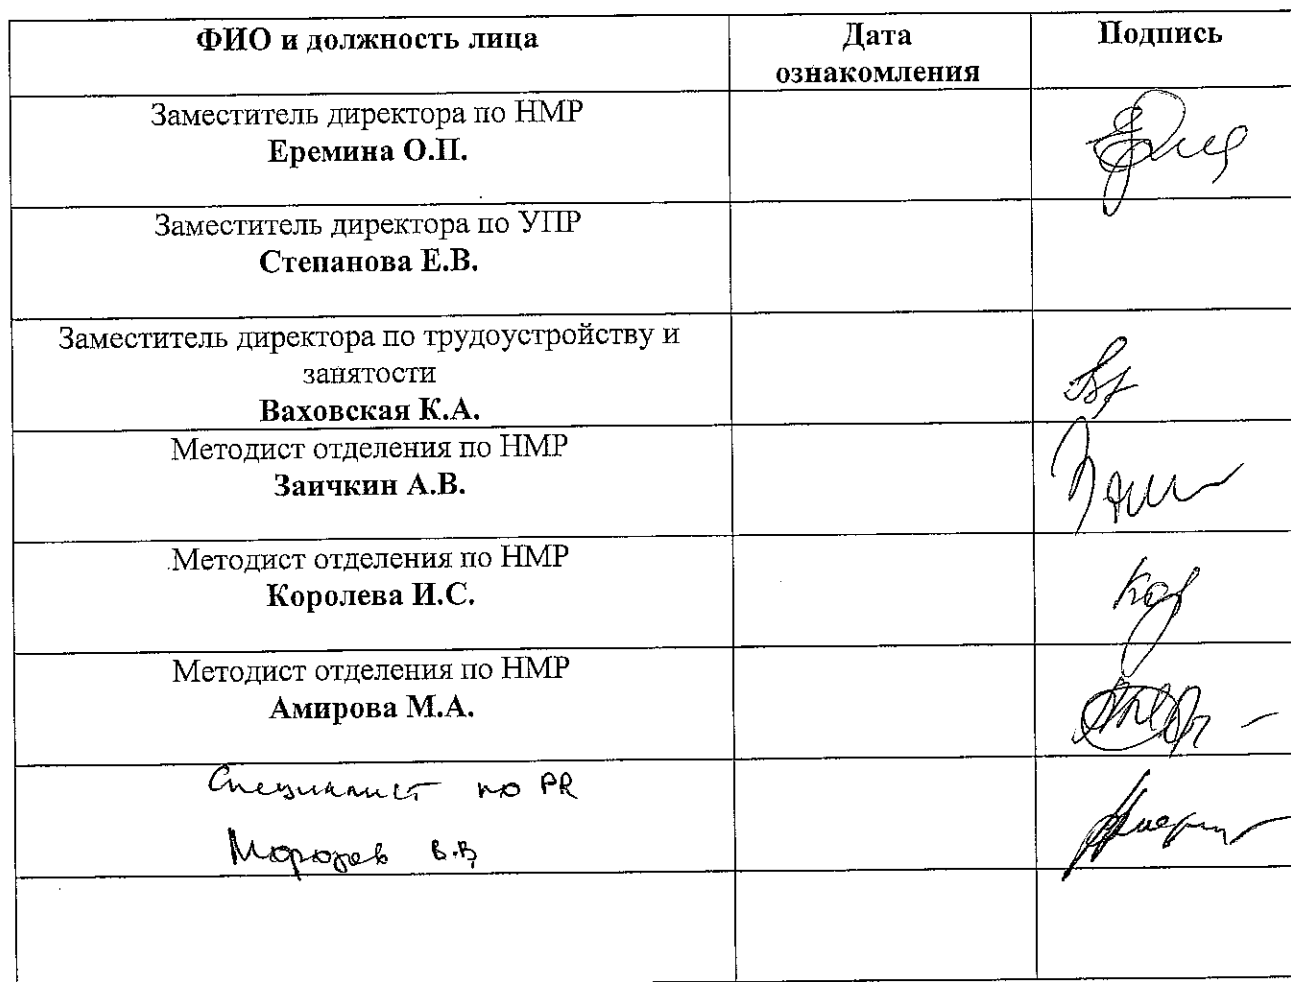 ФИО и должность лица
Дата
ознакомления
Подпись
Заместитель директора по НМР
Еремина О.П.
Заместитель директора по УПР
Степанова Е.В.
Заместитель директора по трудоустройству и
занятости
Ваховская К.А.
Методист отделения по НМР
Заичкин А.В.
Методист отделения по НМР
Королева И.С.
Методист отделения по НМР
Амирова М.А.
Специалист по PR
Морозов В.В